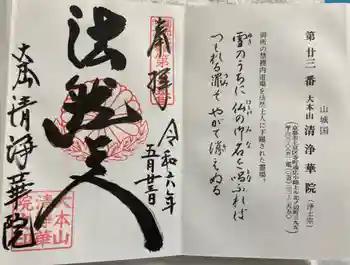 山城国
第廿三番 大本山 清浄華院 (浄土宗)
御所の禁裡内道場を法然上人に下賜された霊場。
雪のうちに 仏の御名を唱ふれば
つもれる罪も やがて消えぬる
奉拝
令和六年
五月廿三日
法然上人
大本山 清浄華院
大本山
清浄華
院印